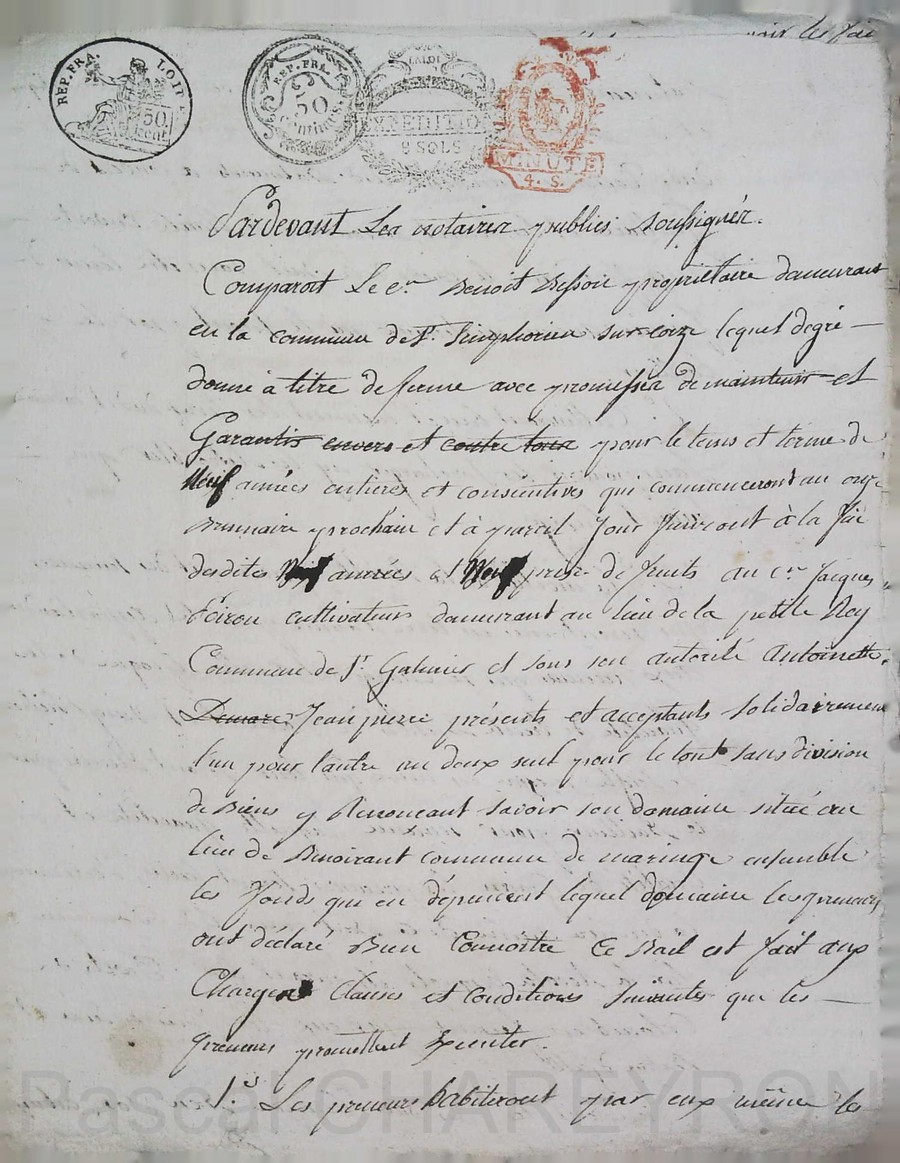 REP. FRA. LOIRE
50 cent
REP. FRA.
50 centimes.
LA LOI
EXPEDITIO
MINUTE
4. S.
Pardevant Les notaires publics soussignés.
Comparoit Le c.en Benoit Besson proprietaire demeurant
en la commune de St. Simphorien sur coize lequel de gré
donne à titre de ferme avec promesses de maintenir et
Garantir envers et contre tous pour le tems et terme de
Neuf années entieres et consécutives qui commenceront au onze
Brumaire prochain et à pareil Jour finiront à la fin
desdites Neuf années et Neuf prise de fruits au c.en Jacques
cultivateur demeurant au lieu de la petite Rey
Commune de St. Galmier et sous son autorité Antoinette
Jeanpierre présents et acceptants solidairement
l'un pour l'autre un deux seul pour le tout sans division
de Biens y Renonçant savoir son domaine situé au
lieu de Benoirant commune de maringe ensemble
les fonds qui en dépendent lequel domaine les preneurs
ont déclaré Bien Connoitre Ce Bail est fait aux
Charges Clauses et conditions suivantes que les
preneurs promettent Executer.
1.° Les preneurs habiteront par eux même le
Pascal CHAREYRON